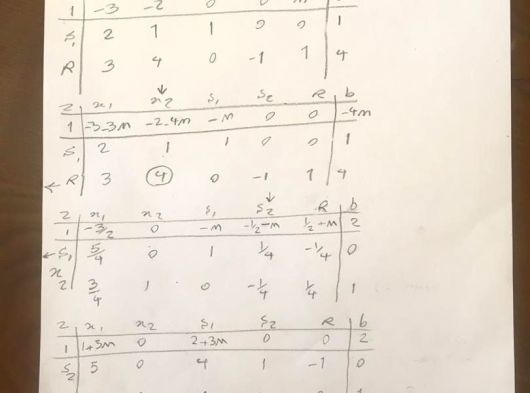 1 -3 -2 0 0 M
S1 2 1 1 0 0 1
R 3 4 0 -1 1 4
Z x1 x2 S1 S2 R b
1 -3-3M -2-4M -M 0 0 -4M
S1 2 1 1 0 0 1
R 3 4 0 -1 1 4
Z x1 x2 S1 S2 R b
1 -3/2 0 -M -1/2-M 1/2-M 2
S1 5/4 0 1 1/4 -1/4 0
x2 3/4 1 0 -1/4 1/4 1
Z x1 x2 S1 S2 R b
1 1+5M 0 2+3M 0 0 2
S2 5 0 4 1 -1 0